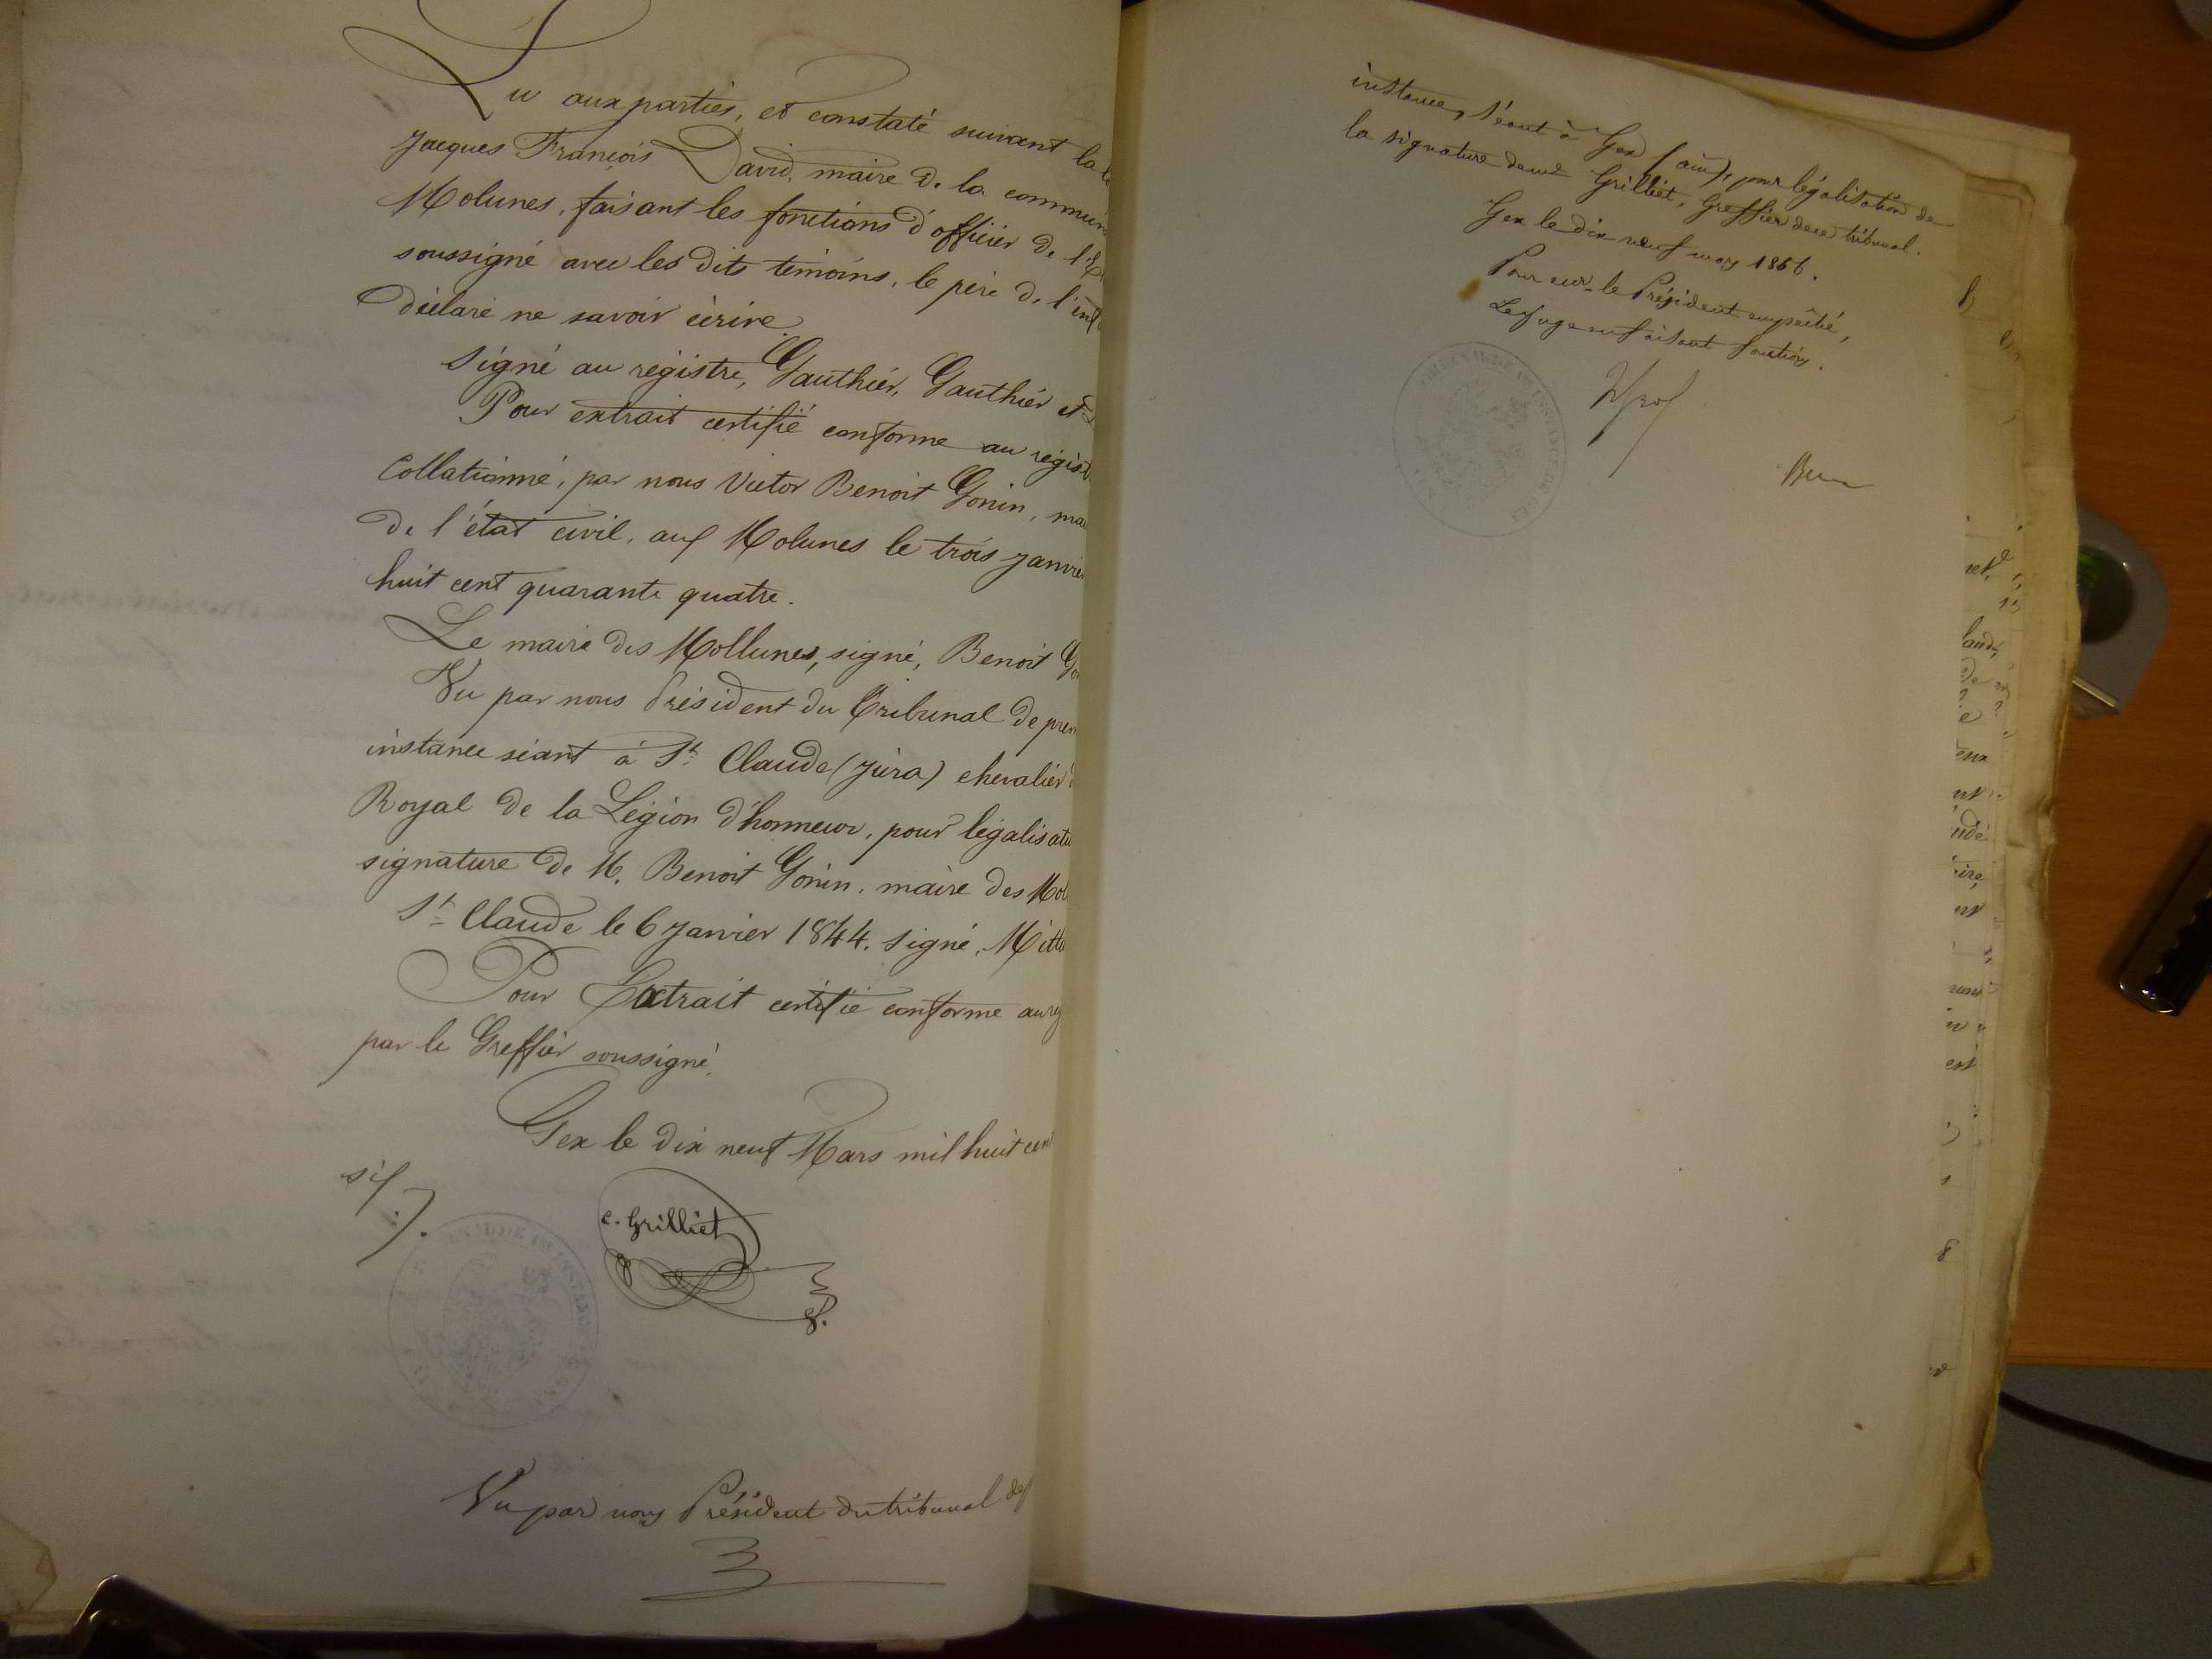 Lu aux parties, et constaté suivant la
Jacques François David, maire de la commun
Molunes, faisant les fonctions d'officier de l'
soussigné avec les dits témoins, le père de l'
déclaré ne savoir écrire.
signé au régistre, Gauthier, Gauthier et
Pour extrait certifié conforme au régist
Collationné, par nous Victor Benoit Gonin, mai
de l'état civil, aux Molunes le trois janvier
huit cent quarante quatre.
Le maire des Mollunes, signé, Benoit Go
Vu par nous Président du Tribunal de prem
instance séant à St Claude (Jura) chevalier
Royal de la Légion d'honneur, pour légalisati
signature de M. Benoit Gonin, maire des Mol
St Claude le 6 janvier 1844. signé, Mitta
Pour Extrait certifié conforme au
par le Greffier soussigné.
Gex le dix neuf Mars mil huit cent
six
c. Grilliet
Vu par nous Président du tribunal de
instance, séant à Gex (ain), pour légalisation de
la signature de Me Grilliet, Greffier de ce tribunal.
Gex le dix neuf mars 1866.
Pour le Président empêché,
Le juge en faisant fonctions.